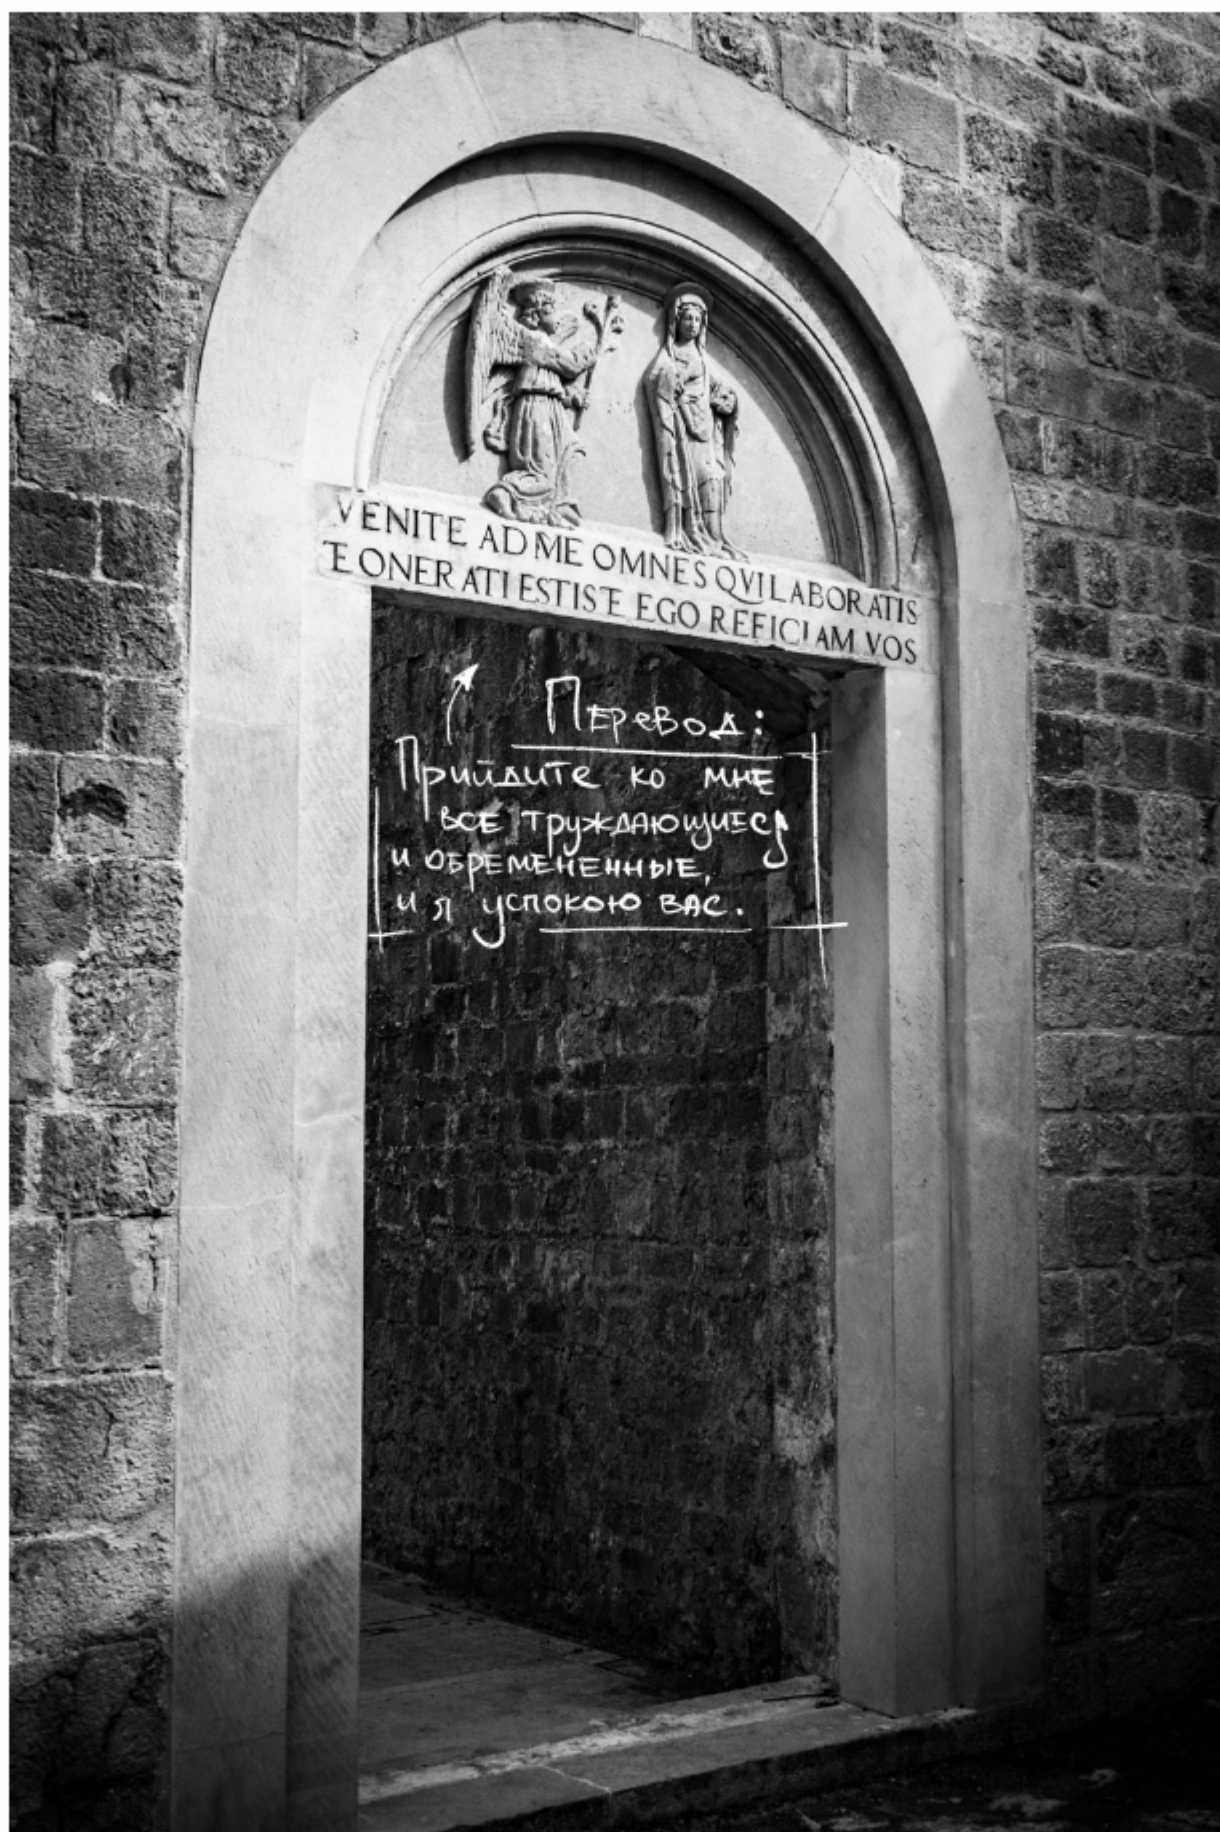 VENITE AD ME OMNES QVI LABORATIS
E ONERATI ESTIS E EGO REFICIAM VOS
Перевод:
Прийдите ко мне
все труждающиеся
и обремененные,
и я успокою вас.